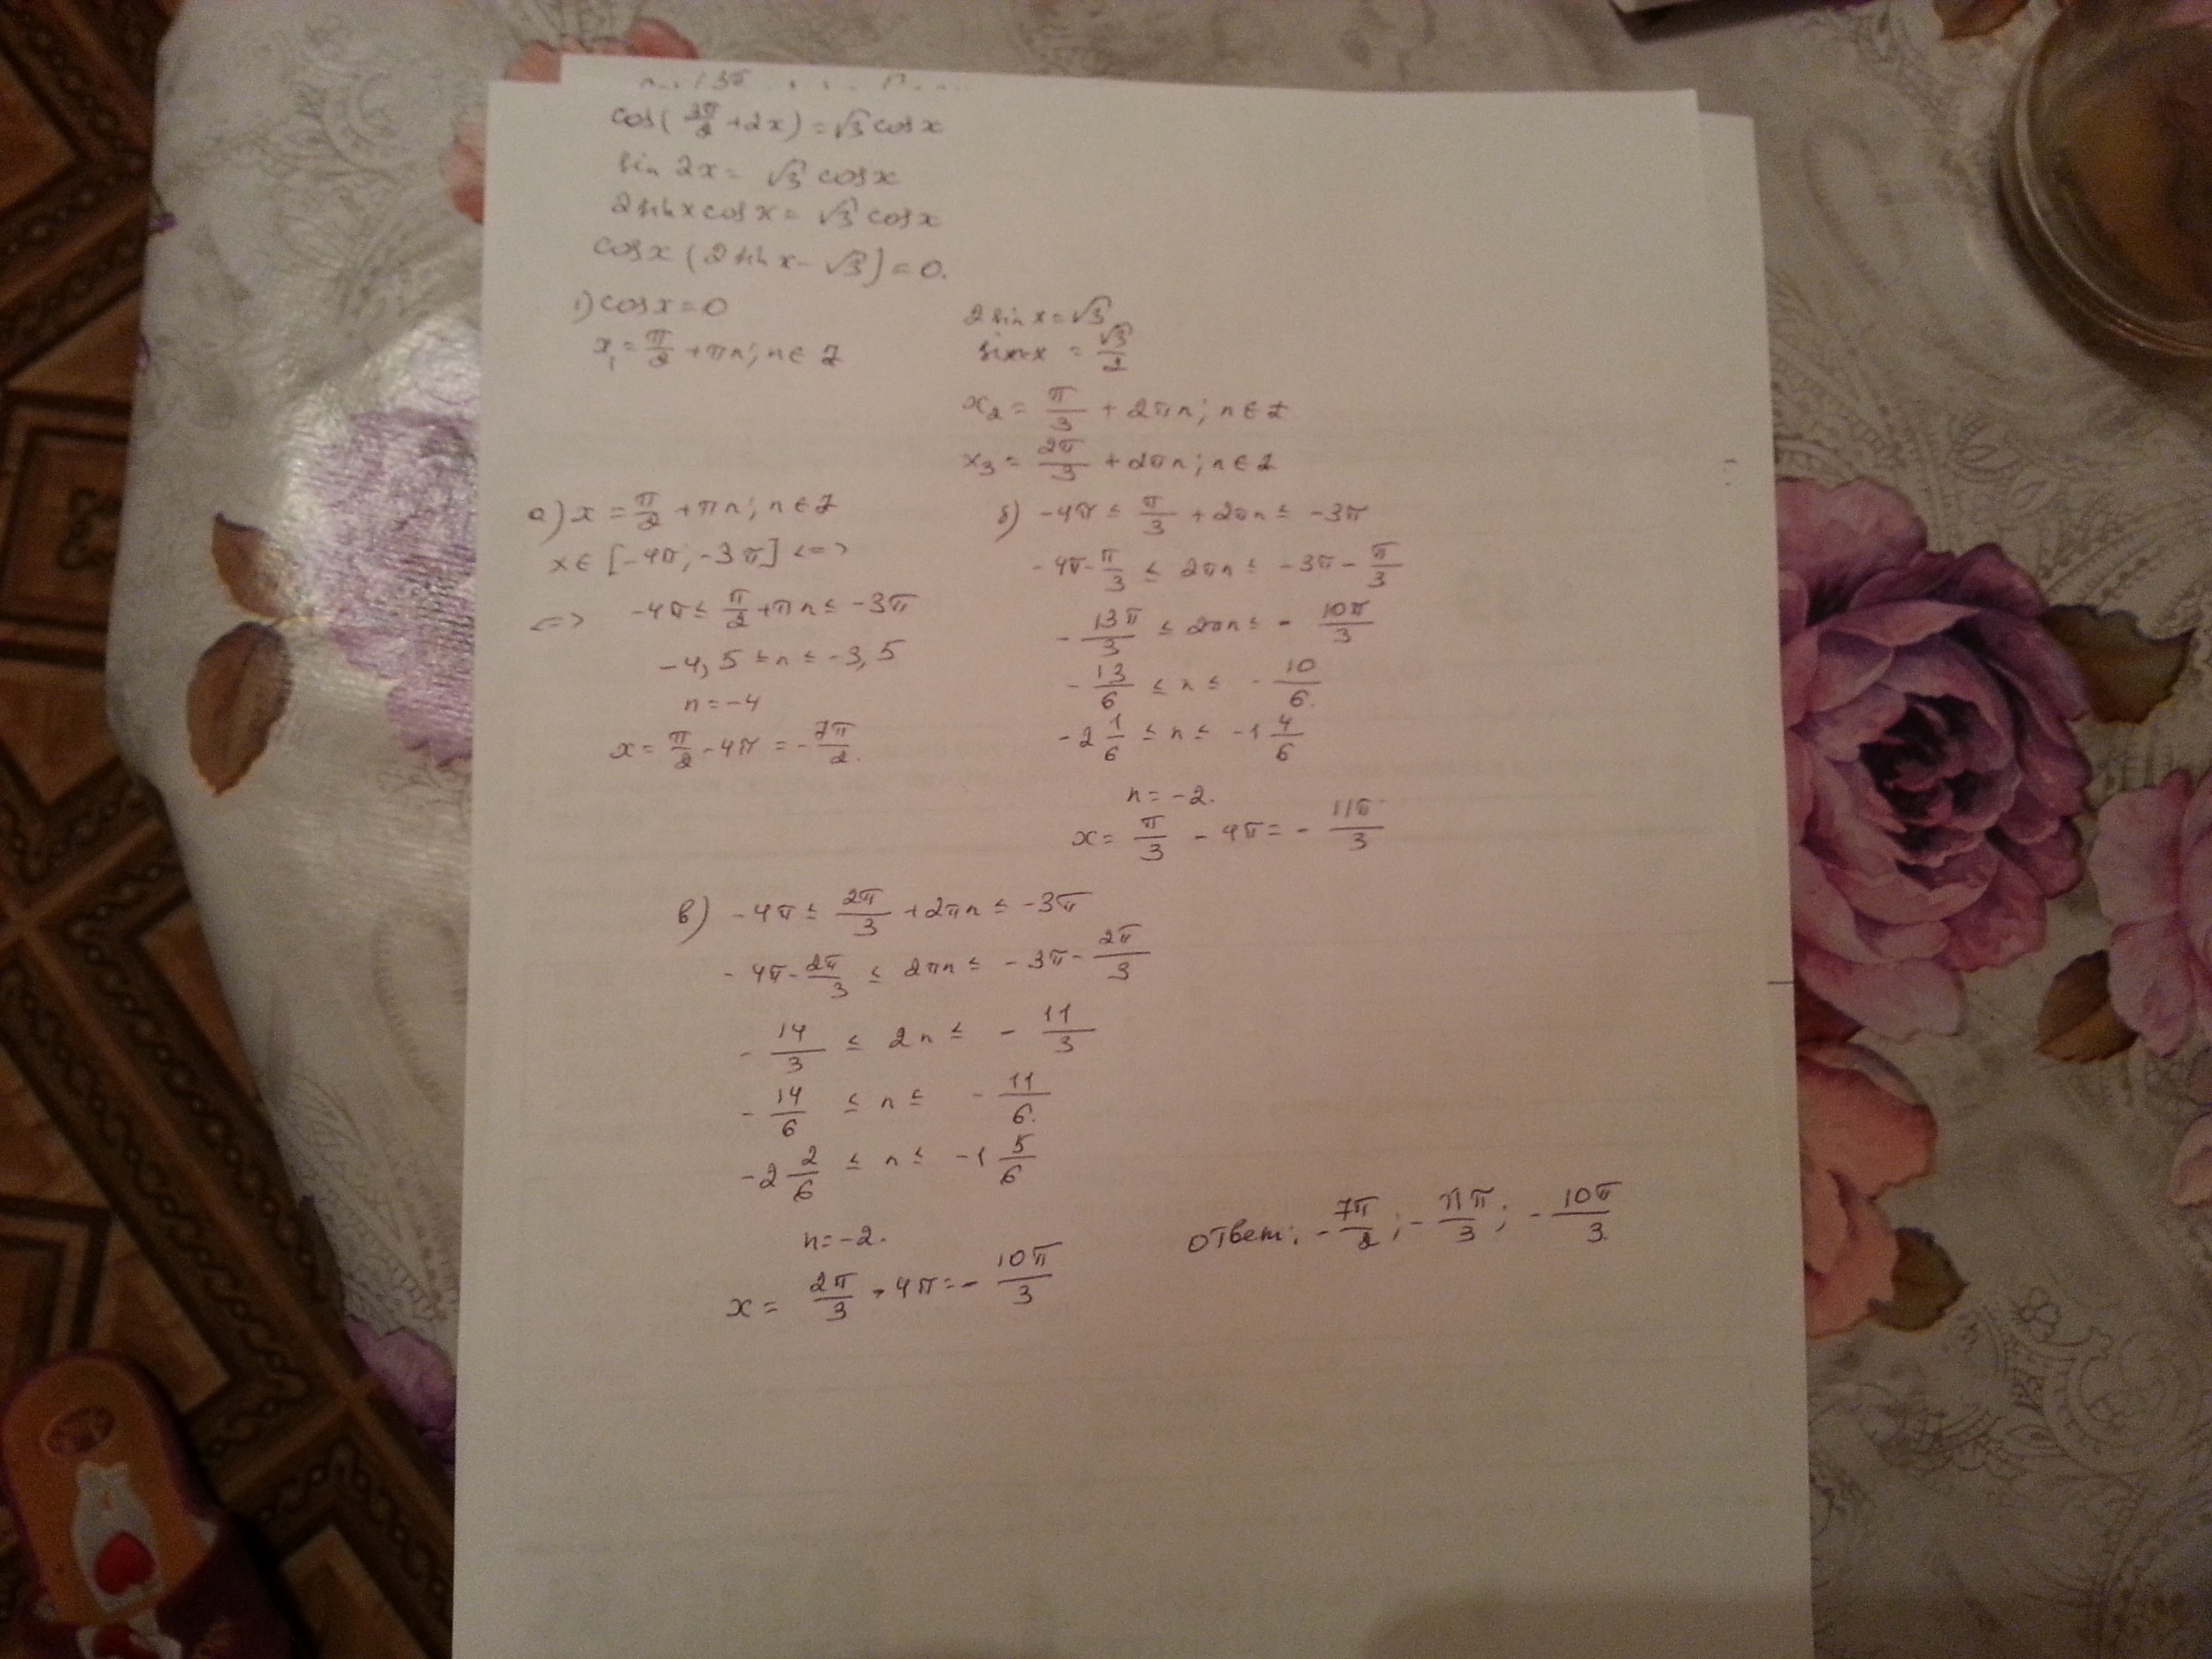 cos(3π/2 + 2x) = √3 cos x
sin 2x = √3 cos x
2 sin x cos x = √3 cos x
cos x (2 sin x - √3) = 0.
1) cos x = 0
x₁ = π/2 + πn; n ∈ Z
2 sin x = √3
sin x = √3/2
x₂ = π/3 + 2πn; n ∈ Z
x₃ = 2π/3 + 2πn; n ∈ Z
а) x = π/2 + πn; n ∈ Z
x ∈ [-4π; -3π] <=>
<=> -4π ≤ π/2 + πn ≤ -3π
-4,5 ≤ n ≤ -3,5
n = -4
x = π/2 - 4π = -7π/2.
б) -4π ≤ π/3 + 2πn ≤ -3π
-4π - π/3 ≤ 2πn ≤ -3π - π/3
-13π/3 ≤ 2πn ≤ -10π/3
-13/6 ≤ n ≤ -10/6.
-2 1/6 ≤ n ≤ -1 4/6
n = -2.
x = π/3 - 4π = -11π/3
в) -4π ≤ 2π/3 + 2πn ≤ -3π
-4π - 2π/3 ≤ 2πn ≤ -3π - 2π/3
-14/3 ≤ 2n ≤ -11/3
-14/6 ≤ n ≤ -11/6.
-2 2/6 ≤ n ≤ -1 5/6
n = -2.
x = 2π/3 - 4π = -10π/3
ответ: -7π/2; -11π/3; -10π/3.